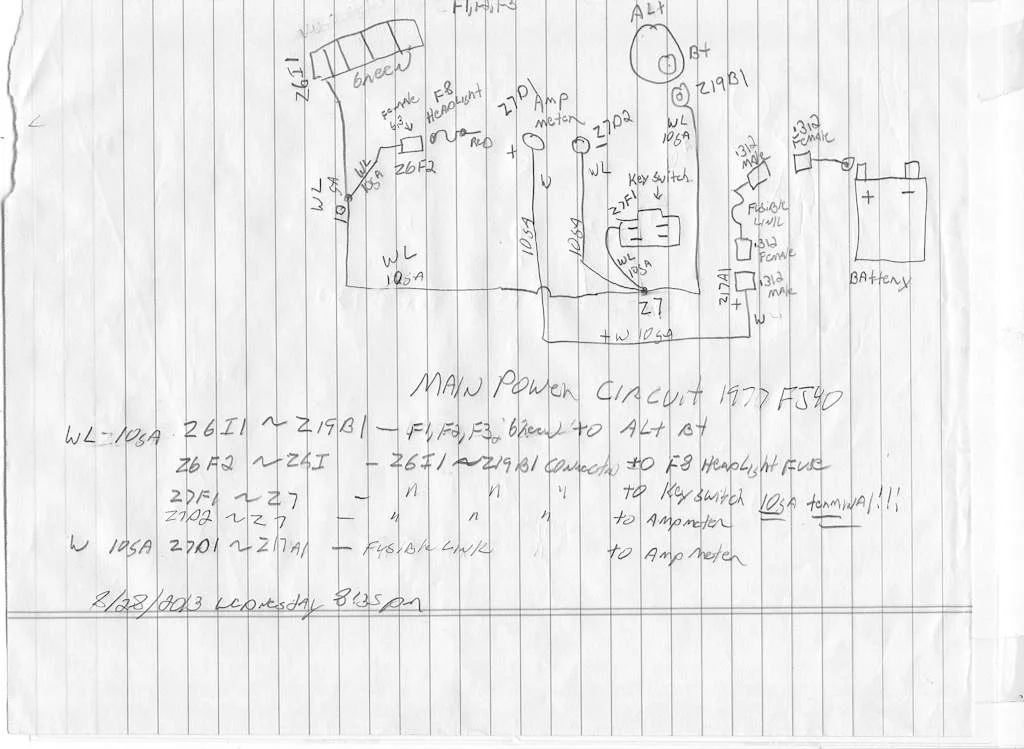 F1,F2,F3
ALt
B+
Z19B1
Z6I1
Green
Female
6.3
F8
HEADLight
RED
Z6F2
WL
10gA
WL
10gA
WL
10gA
Z7D1
Amp
meter
+
Z7D2
WL
10gA
10gA
WL
10gA
Key switch
Z7F1
WL
10gA
Z7
+W 10gA
.312
male
.312
Female
Fusible
Link
.312
Female
.312
male
Z17A1
+
W
+ -
BAttery
MAIN Power CIRCUIT 1977 FJ40
WL-10gA Z6I1 ~ Z19B1 - F1, F2, F3, "Green" to ALt B+
Z6F2 ~ Z6I - Z6I1 ~ Z19B1 Connector to F8 HeadLight Fuse
Z7F1 ~ Z7 - " " " to Key switch 10gA terminAl!!!
Z7D2 ~ Z7 - " " " to Ampmeter
W 10gA Z7D1 ~ Z17A1 - Fusible Link to Amp meter
8/28/2013 Wednesday 8:35pm